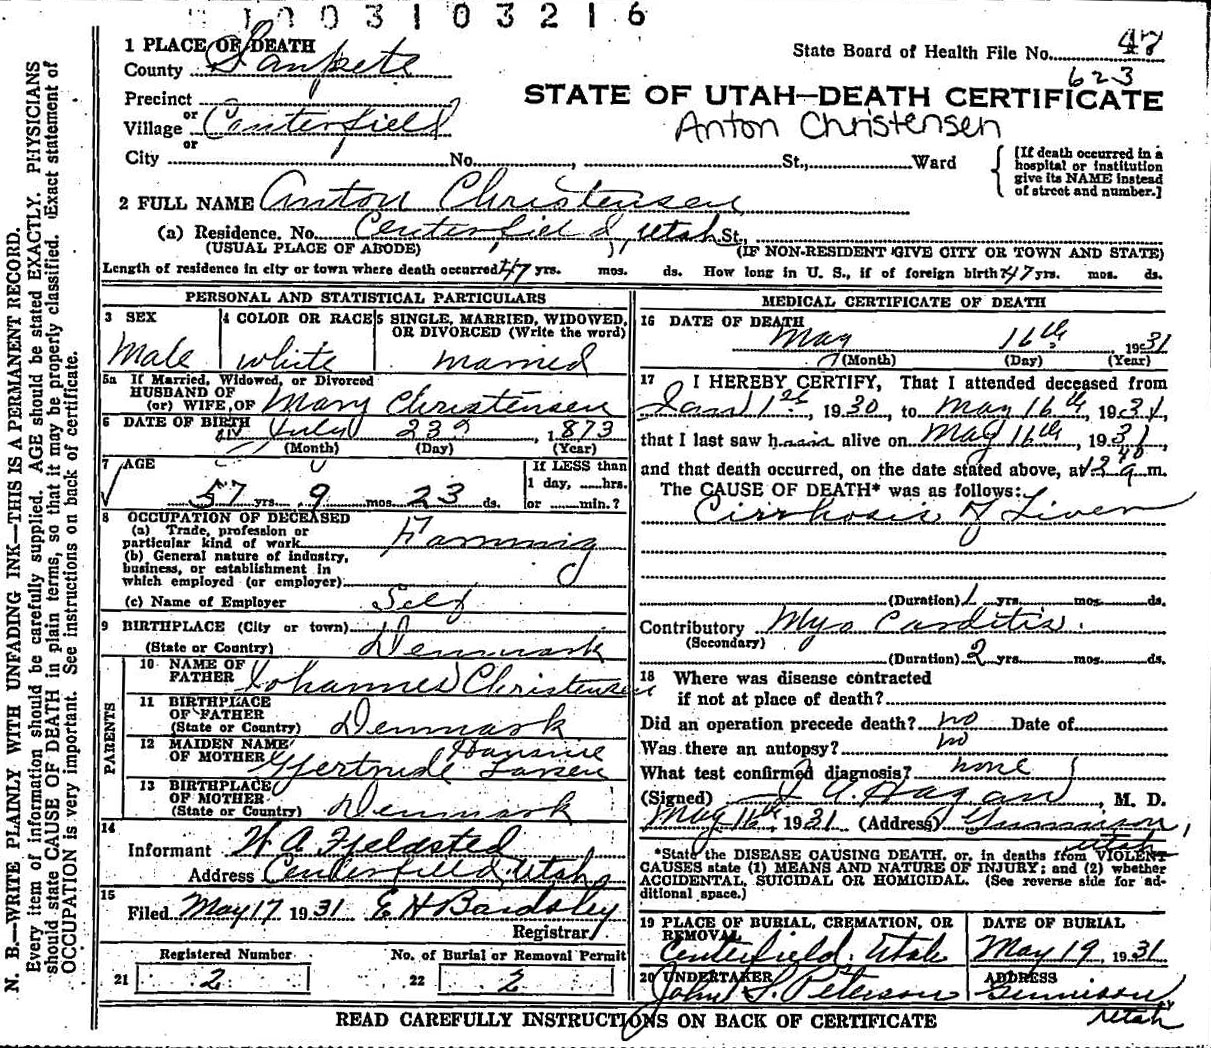 1003103216
1 PLACE OF DEATH
County Sanpete
State Board of Health File No. 47
623
Precinct
or
Village Centerfield
or
STATE OF UTAH—DEATH CERTIFICATE
Anton Christensen
City No. , St., Ward
[If death occurred in a hospital or institution give its NAME instead of street and number.]
2 FULL NAME Anton Christensen
(a) Residence. No. Centerfield, Utah St.,
(USUAL PLACE OF ABODE) (IF NON-RESIDENT GIVE CITY OR TOWN AND STATE)
Length of residence in city or town where death occurred 47 yrs. mos. ds. How long in U. S., if of foreign birth? 47 yrs. mos. ds.
PERSONAL AND STATISTICAL PARTICULARS
3 SEX
Male
4 COLOR OR RACE
white
5 SINGLE, MARRIED, WIDOWED, OR DIVORCED (Write the word)
married
5a If Married, Widowed, or Divorced
HUSBAND OF
(or) WIFE OF Mary Christensen
6 DATE OF BIRTH July 23rd, 1873
(Month) (Day) (Year)
7 AGE
57 yrs. 9 mos. 23 ds.
If LESS than
1 day, hrs.
or min.?
8 OCCUPATION OF DECEASED
(a) Trade, profession or
particular kind of work Farming
(b) General nature of industry,
business, or establishment in
which employed (or employer)
(c) Name of Employer Self
9 BIRTHPLACE (City or town)
(State or Country) Denmark
PARENTS
10 NAME OF
FATHER Johannes Christensen
11 BIRTHPLACE
OF FATHER
(State or Country) Denmark
12 MAIDEN NAME
OF MOTHER Gjertrude Hansine Larsen
13 BIRTHPLACE
OF MOTHER
(State or Country) Denmark
14
Informant W A Fjeldsted
Address Centerfield, Utah
15
Filed May 17 1931 E H Bardsley
Registrar
Registered Number
21 2
No. of Burial or Removal Permit
22 2
MEDICAL CERTIFICATE OF DEATH
16 DATE OF DEATH
May 16th 1931
(Month) (Day) (Year)
17 I HEREBY CERTIFY, That I attended deceased from
Jan 1st, 1930, to May 16th, 1931,
that I last saw him alive on May 16th, 1931,
and that death occurred, on the date stated above, at m.
The CAUSE OF DEATH* was as follows:
Cirrhosis of Liver
(Duration) 1 yrs. mos. ds.
Contributory Myo Carditis.
(Secondary)
(Duration) 2 yrs. mos. ds.
18 Where was disease contracted
if not at place of death?
Did an operation precede death? no Date of
Was there an autopsy? no
What test confirmed diagnosis? none
(Signed) Hagan, M. D.
May 16th, 1931 (Address) Gunnison, Utah
*State the DISEASE CAUSING DEATH, or, in deaths from VIOLENT
CAUSES state (1) MEANS AND NATURE OF INJURY; and (2) whether
ACCIDENTAL, SUICIDAL OR HOMICIDAL. (See reverse side for ad-
ditional space.)
19 PLACE OF BURIAL, CREMATION, OR
REMOVAL
Centerfield, Utah
DATE OF BURIAL
May 19, 1931
20 UNDERTAKER
John S. Peterson
ADDRESS
Gunnison
Utah
READ CAREFULLY INSTRUCTIONS ON BACK OF CERTIFICATE
N. B.—WRITE PLAINLY WITH UNFADING INK—THIS IS A PERMANENT RECORD.
Every item of information should be carefully supplied. AGE should be stated EXACTLY. PHYSICIANS
should state CAUSE OF DEATH in plain terms, so that it may be properly classified. Exact statement of
OCCUPATION is very important. See instructions on back of certificate.